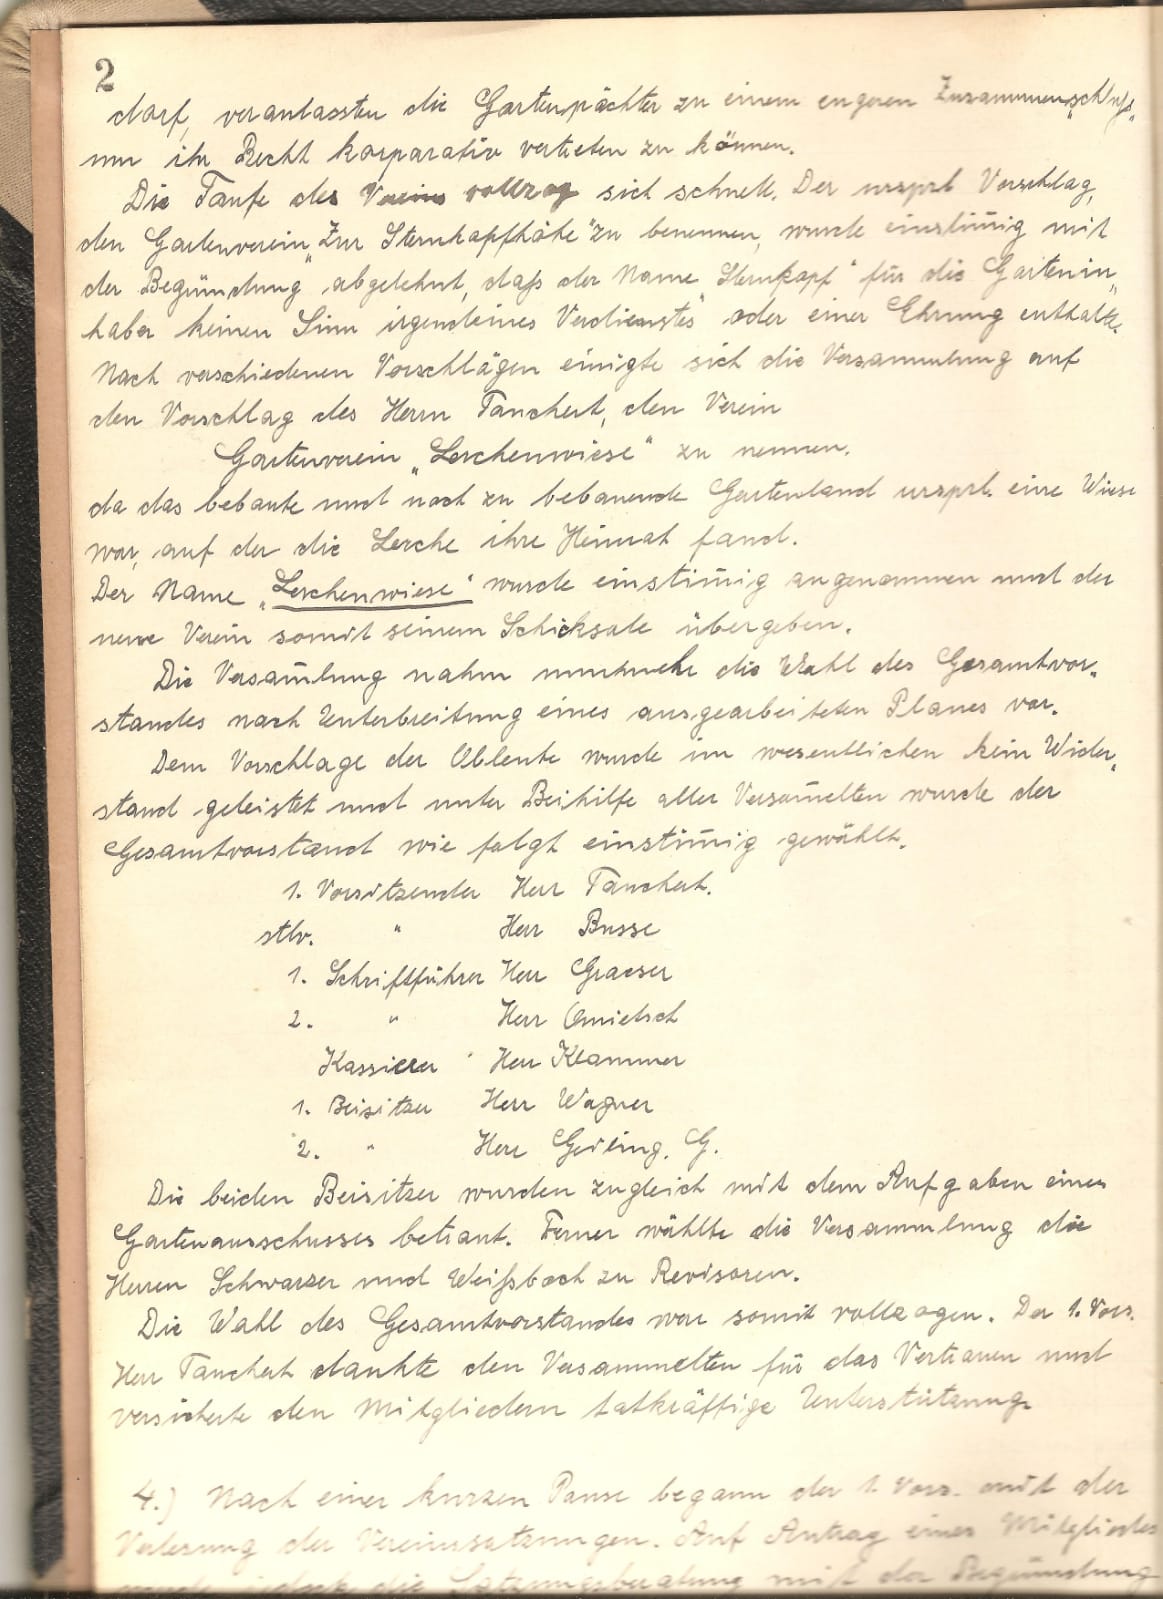 2
darf, veranlassten die Gartenpächter zu einem engeren Zusammenschluß„
um ihr Recht korporativ vertreten zu können.
Die Taufe des Vereins vollzog sich schnell. Der ursprl Vorschlag,
den Gartenverein „Zur Sternkopfhöhe" zu benennen, wurde einstim̄ig mit
der Begründung abgelehnt, daß der Name „Sternkopf" für die Gartenin„
haber keinen Sinn irgendeines Verdienstes oder einer Ehrung enthalte.
Nach verschiedenen Vorschlägen einigte sich die Versammlung auf
den Vorschlag des Herrn Tanchert, den Verein
Gartenverein „Lerchenwiese" zu nennen.
da das bebaute und noch zu bebauende Gartenland ursprl. eine Wiese
war, auf der die Lerche ihre Heimat fand.
Der Name „Lerchenwiese" wurde einstim̄ig angenommen und der
neue Verein somit seinem Schicksale übergeben.
Die Versam̄lung nahm nunmehr die Wahl des Gesamtvor„
standes nach Unterbreitung eines ausgearbeiteten Planes vor.
Dem Vorschlage der Obleute wurde im wesentlichen kein Wider„
stand geleistet und unter Beihilfe aller Versam̄elten wurde der
Gesamtvorstand wie folgt einstim̄ig gewählt.
1. Vorsitzender Herr Tanchert.
stlv. " Herr Busse
1. Schriftführer Herr Graeser
2. " Herr Omietsch
Kassierer Herr Klammer
1. Beisitzer Herr Wagner
2. " Herr Gerling. G.
Die beiden Beisitzer wurden zugleich mit dem Aufgaben eines
Gartenausschusses betraut. Ferner wählte die Versammlung die
Herren Schwarzer und Weißbach zu Revisoren.
Die Wahl des Gesamtvorstandes war somit vollzogen. Der 1. Vors.
Herr Tanchert dankte den Versammelten für das Vertrauen und
versicherte den Mitgliedern tatkräftige Unterstützung.
4.) Nach einer kurzen Pause begann der 1. Vors. mit der
Verlesung der Vereinssatzungen. Auf Antrag eines Mitgliedes
wurde jedoch die Satzungsberatung mit der Begründung